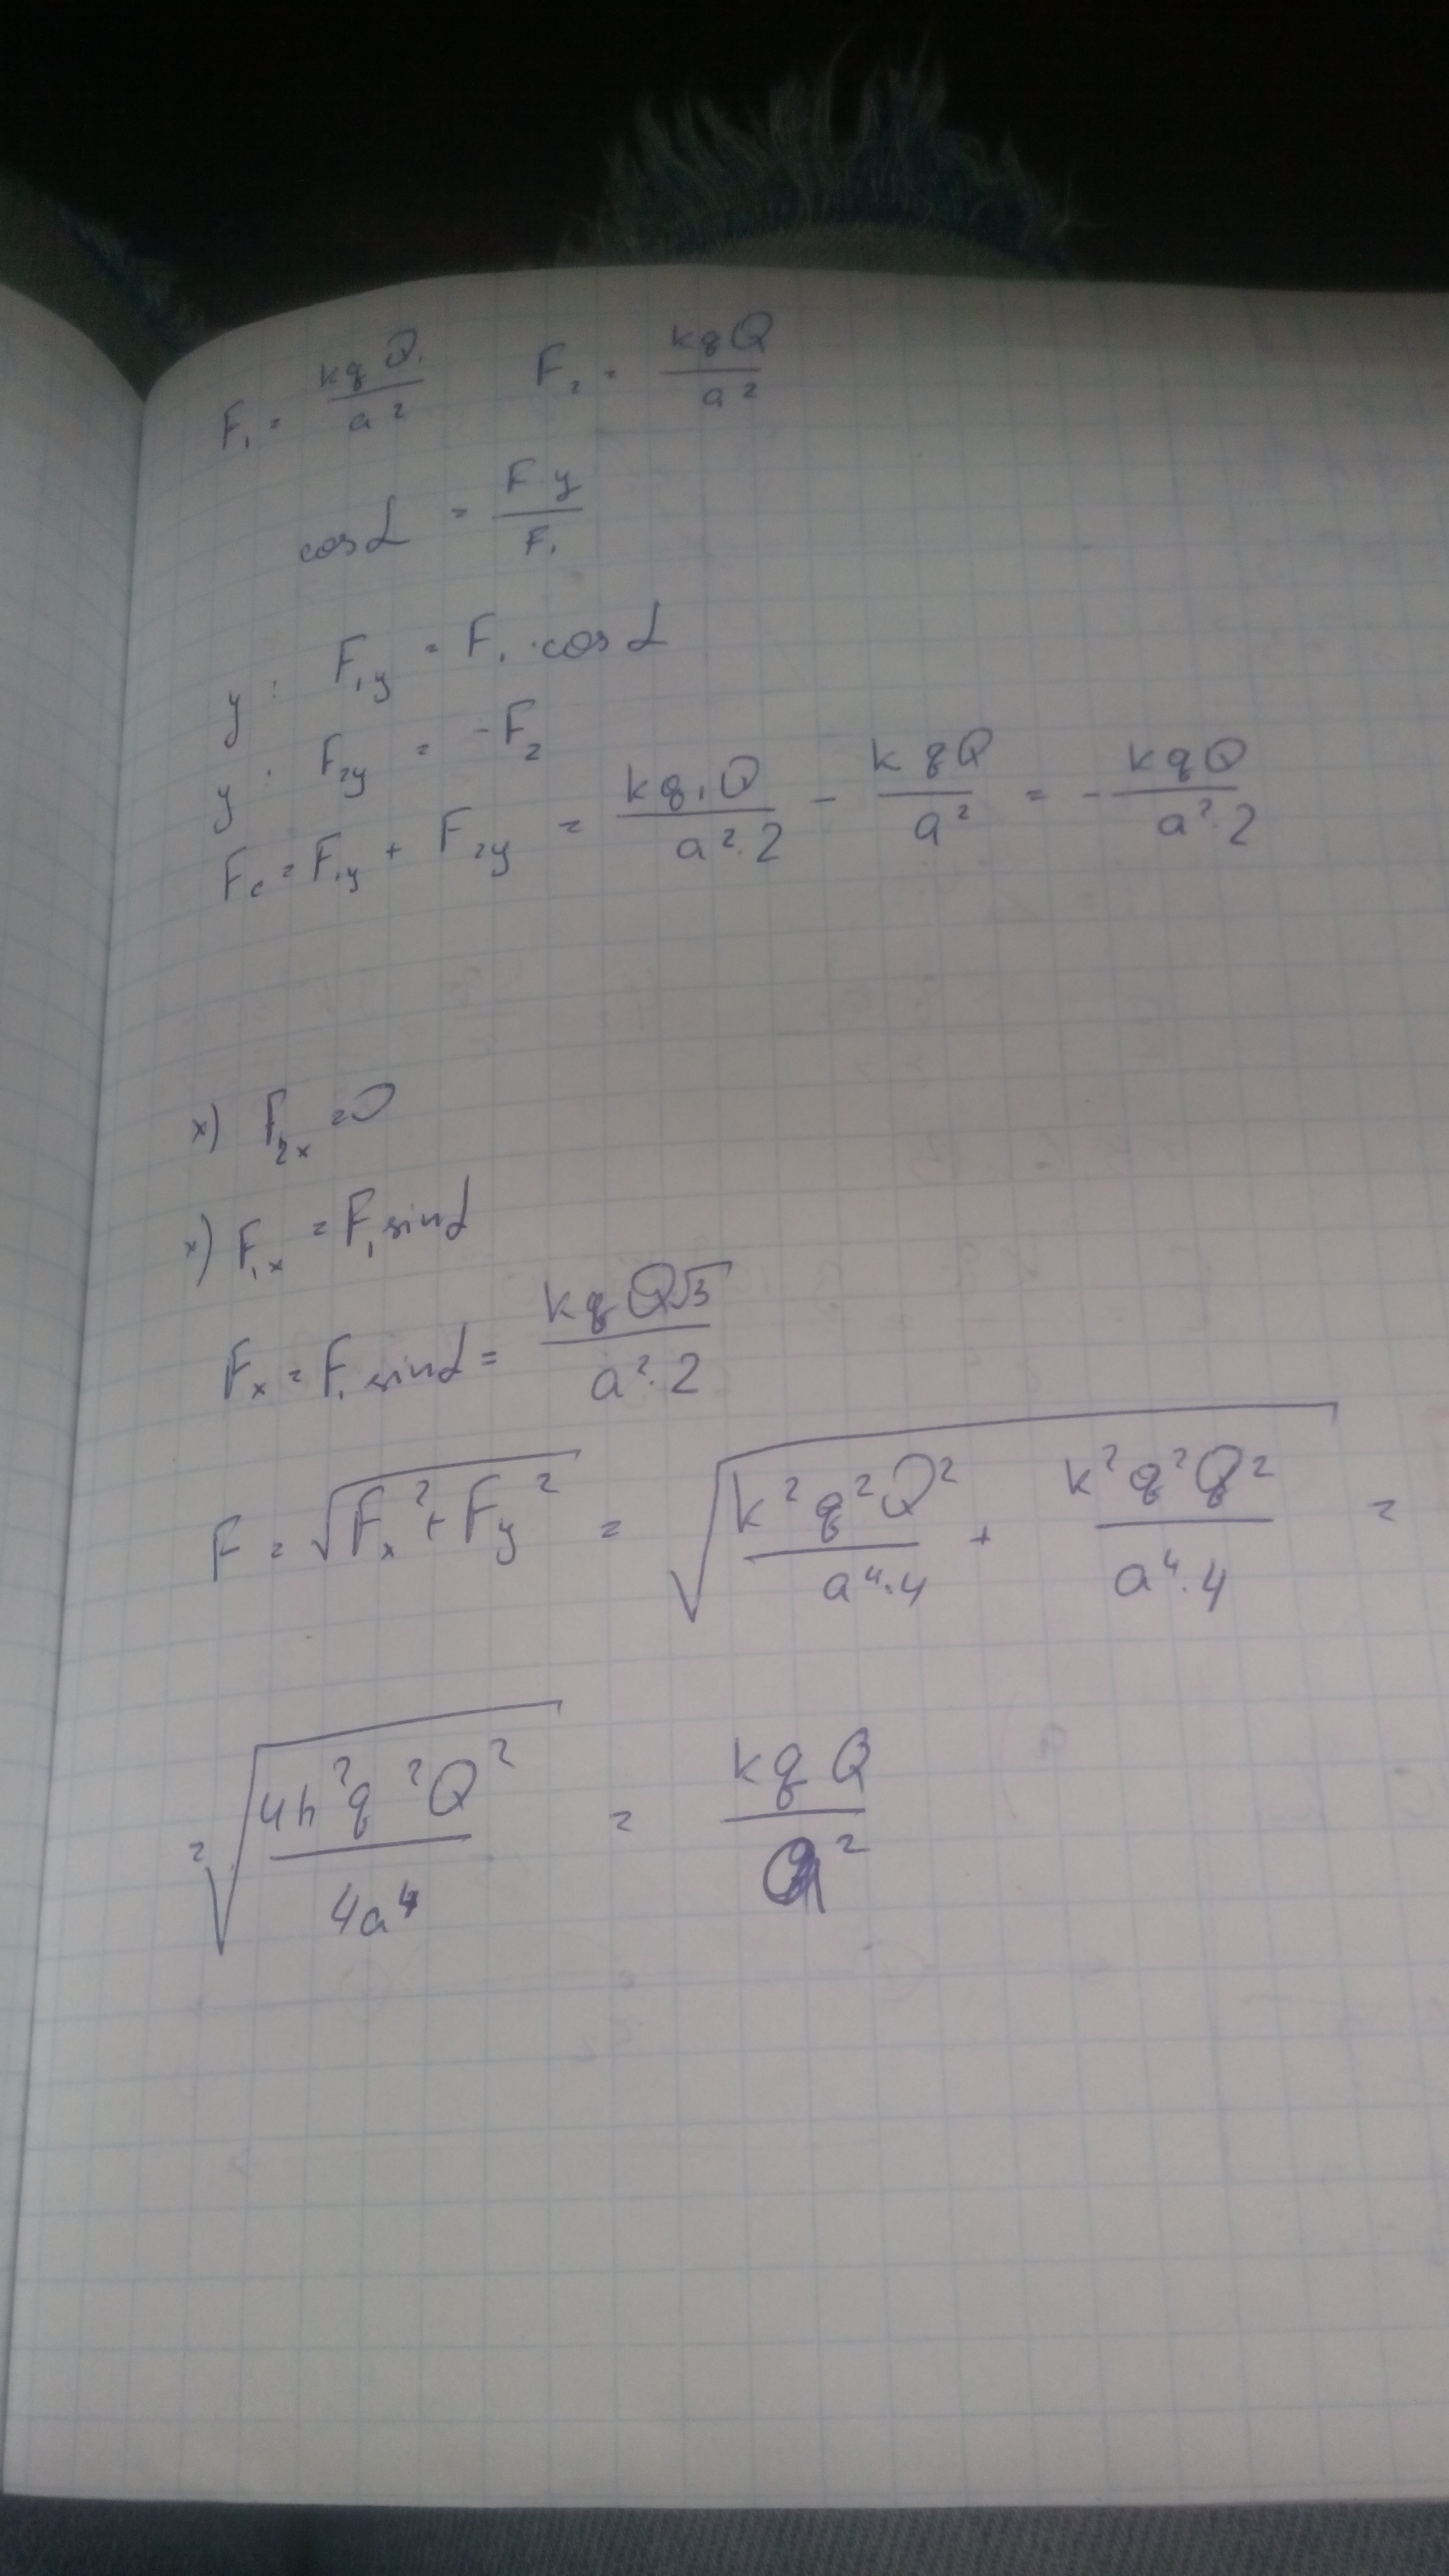 F₁ = kqQ/a² F₂ = kqQ/a²
cosα = Fy/F₁
y: F₁y = F₁ · cosα
y: F₂y = -F₂
Fc = F₁y + F₂y = kq₁Q/a²·2 - kqQ/a² = -kqQ/a²·2
x) F₂x = 0
x) F₁x = F₁ sinα
Fx = F₁ sinα = kqQ√3/a²·2
F = √(Fx² + Fy²) = √(k²q²Q²/a⁴·4 + k²q²Q²/a⁴·4) =
= √(4k²q²Q²/4a⁴) = kqQ/a²